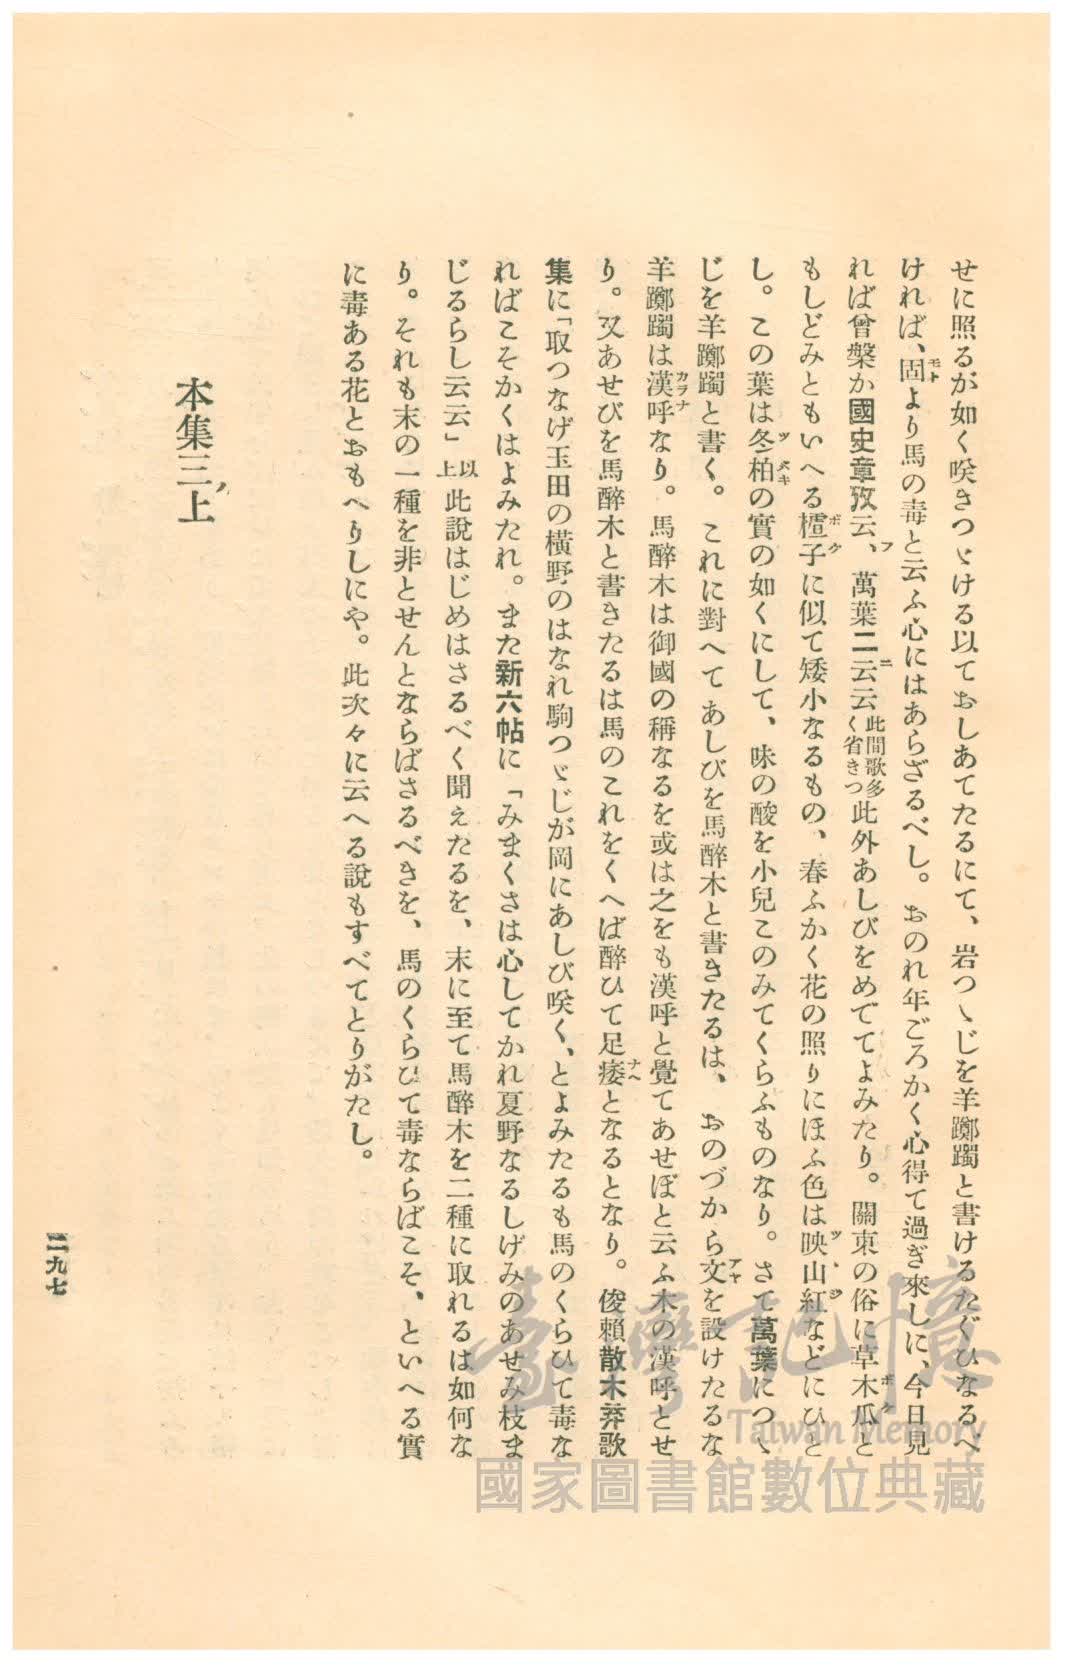 せに照るが如く咲きつゞける以ておしあてたるにて、岩つゝじを羊躑躅と書けるたぐひなるべ
ければ、固より馬の毒と云ふ心にはあらざるべし。おのれ年ごろかく心得て過ぎ來しに、今日見
れば曾槃か國史章攷云、萬葉二云云此間歌多く省きつ此外あしびをめでてよみたり。關東の俗に草木瓜と
もしどみともいへる樝子に似て矮小なるもの、春ふかく花の照りにほふ色は映山紅などにひと
し。この葉は冬柏の實の如くにして、味の酸を小兒このみてくらふものなり。さて萬葉につゝ
じを羊躑躅と書く。これに對へてあしびを馬醉木と書きたるは、おのづから文を設けたるな
羊躑躅は漢呼なり。馬醉木は御國の稱なるを或は之をも漢呼と覺てあせぼと云ふ木の漢呼とせ
り。又あせびを馬醉木と書きたるは馬のこれをくへば醉ひて足痿となるとなり。俊賴散木弃歌
集に「取つなげ玉田の橫野のはなれ駒つゞじが岡にあしび咲く、とよみたるも馬のくらひて毒な
ればこそかくはよみたれ。また新六帖に「みまくさは心してかれ夏野なるしげみのあせみ枝ま
じるらし云云」以上此說はじめはさるべく聞えたるを、末に至て馬醉木を二種に取れるは如何な
り。それも末の一種を非とせんとならばさるべきを、馬のくらひて毒ならばこそ、といへる實
に毒ある花とおもへりしにや。此次々に云へる說もすべてとりがたし。
本集三ノ上
二九七
臺灣記憶
Taiwan Memory
國家圖書館數位典藏